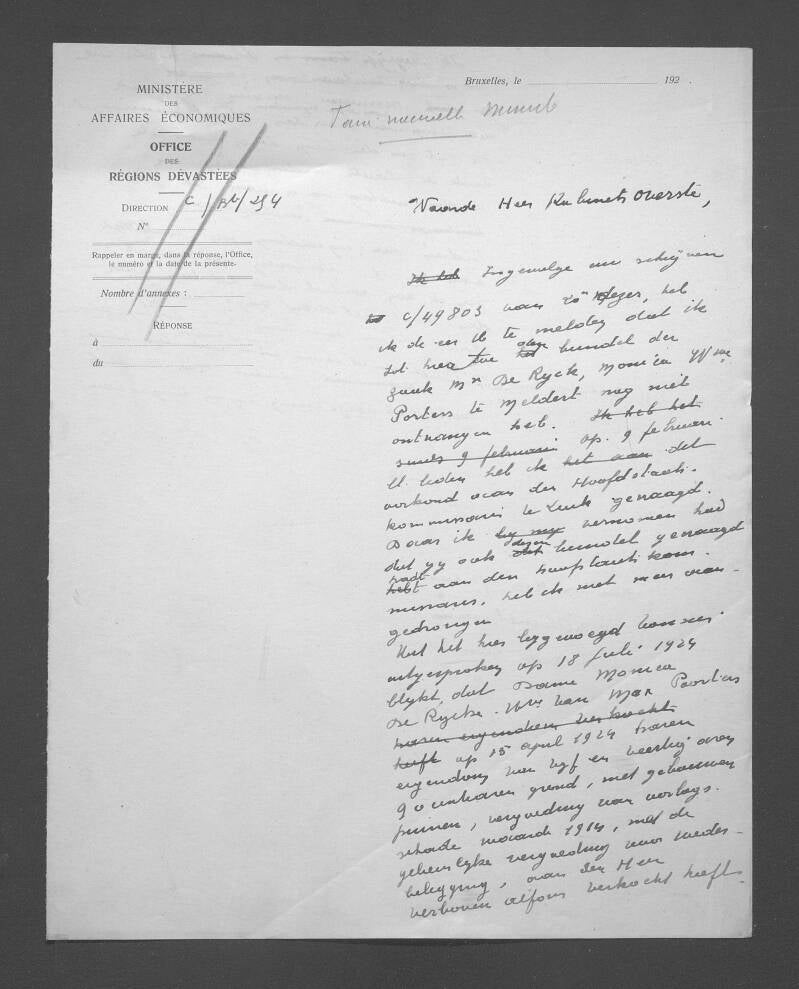 MINISTÈRE
DES
AFFAIRES ÉCONOMIQUES
OFFICE
DES
RÉGIONS DÉVASTÉES
DIRECTION C/
N°
Rappeler en marge, dans la réponse, l'Office,
le numéro et la date de la présente.
Nombre d'annexes :
RÉPONSE
à
du
Bruxelles, le 192 .
Waarde Heer Kabinetsoverste,
Ik heb Ingevolge uw schrijven
C/49803 van dezer, heb
ik de eer U te melden dat ik
tot hiertoe het bundel der
zaak De Ryck, Monica
te Meldert nog niet
ontvangen heb. Ik heb het
sinds 9 februari op 9 februari
ll. leden heb ik het aan dit
van den Hoofdstaats-
kommissaris te Luik gevraagd.
Daar ik vernomen had
dat gij ook dezen bundel gevraagd
hadt aan den hoofdstaatskom-
missaris, heb ik niet meer aan-
gedrongen
Uit het hier bijgevoegd vonnis
uitgesproken op 18 Juli 1924
blijkt, dat Dame Monica
De Rycke, Wwe van Max Poortus
haren eigendom verkocht
heeft op 15 april 1924 haren
eigendom van vijf en veertig aren
90 centiaren grond, met gebouwen
puinen, vergoeding van oorlogs-
schade waarde 1914, met de
gebeurlijke vergoeding voor weder-
belegging, aan den Heer
Verhoven Alfons verkocht heeft.